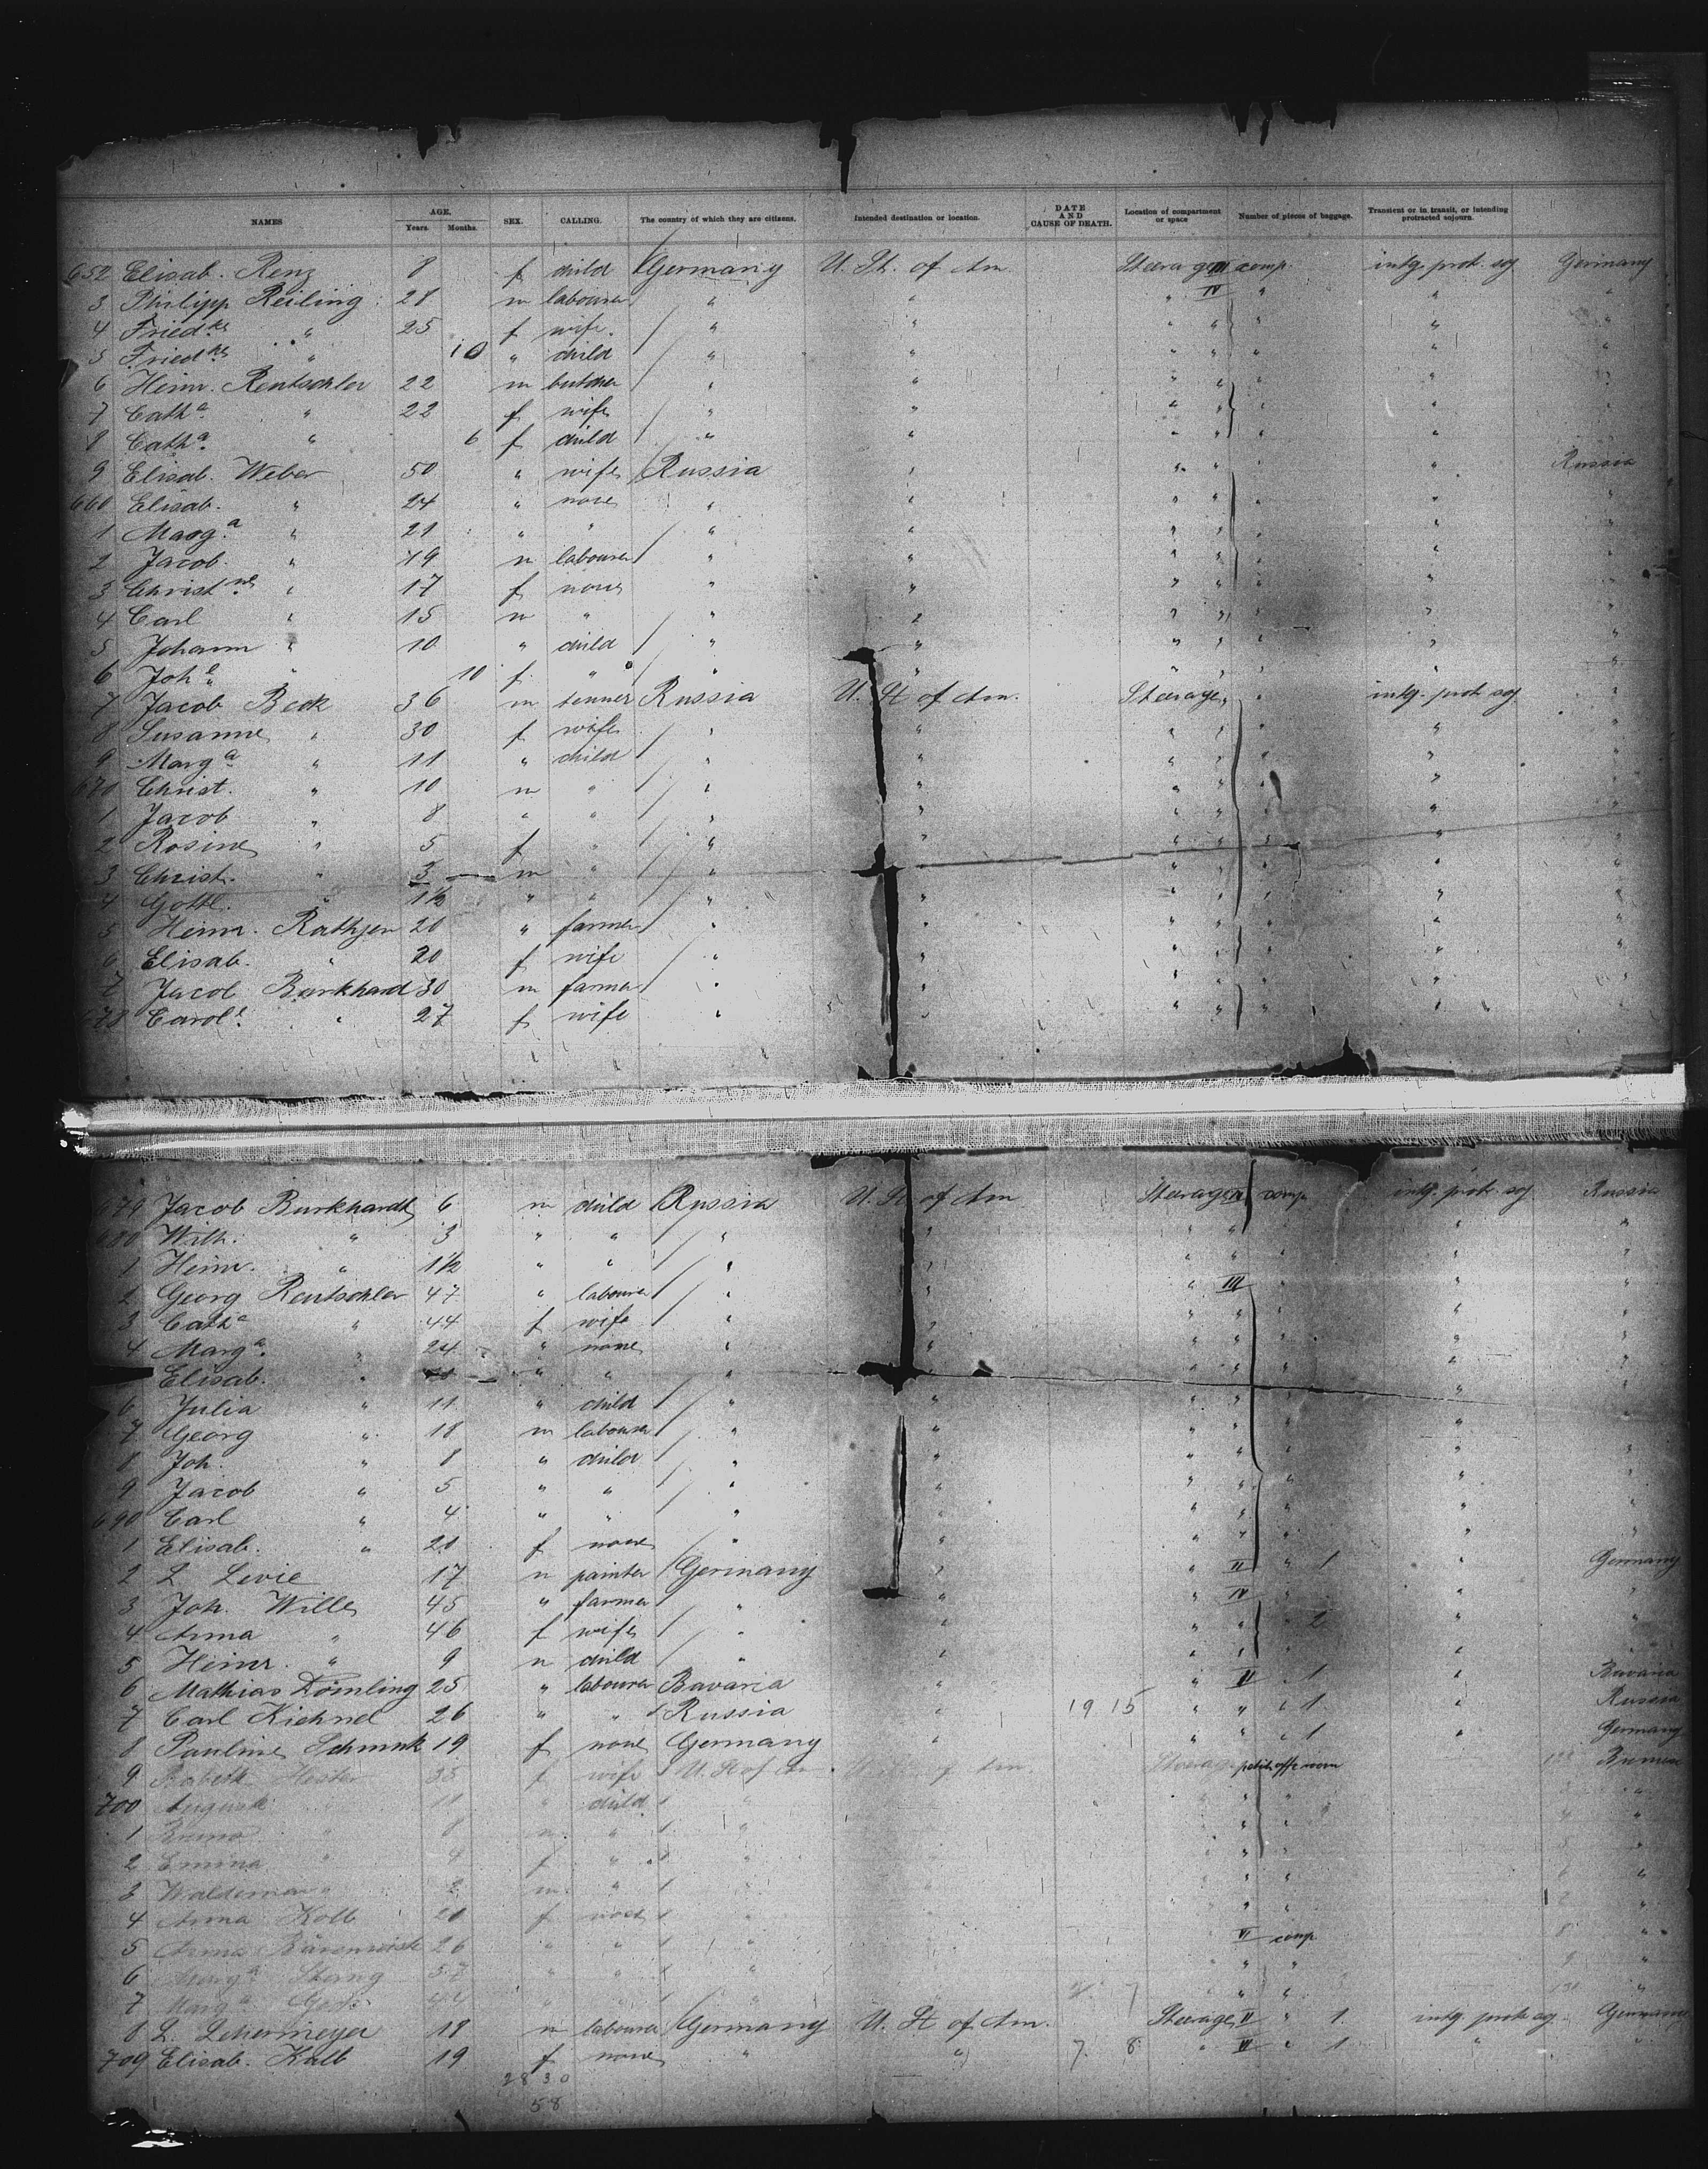 NAMES AGE. Years. Months. SEX. CALLING. The country of which they are citizens. Intended destination or location. DATE AND CAUSE OF DEATH. Location of compartment or space Number of pieces of baggage. Transient or in transit, or intending protracted sojourn.
652 Elisab. Renz 8 f child Germany U. St. of Am. Steerage III comp. intg. prot. soj Germany
3 Philipp Reiling 28 m labourer " " " IV " " "
4 Fried.ke " 25 f wife " " " " " " "
5 Fried.ke " 10 " child " " " " " " "
6 Heinr. Rentschler 22 m butcher " " " " " " "
7 Cath.a " 22 f wife " " " " " "
8 Cath.a " 6 f child " " " " " "
9 Elisab. Weber 50 " wife Russia " " " " Russia
660 Elisab. " 24 " none " " " " " " "
1 Marg.a " 21 " " " " " " " " "
2 Jacob " 19 m labourer " " " " " " "
3 Christ.ne " 17 f none " " " " " " "
4 Carl " 15 m " " " " " " " "
5 Johann " 10 " child " " " " " " "
6 Joh.e " 10 f " " " " " " " "
7 Jacob Beck 36 m tenner Russia U. St of Am. Steerage " " intg. prot soj "
8 Susanne " 30 f wife " " " " " "
9 Marg.a " 11 " child " " " " " "
670 Christ. " 10 m " " " " " " " "
1 Jacob " 8 " " " " " " " " "
2 Rosine " 5 f " " " " " " " "
3 Christ. " 3 m " " " " " " " "
4 Gottl. " 1½ " " " " " " " " "
5 Heinr. Rathjen 20 " farmer " " " " " " "
6 Elisab. " 20 f wife " " " " " " "
7 Jacob Burkhard 30 m farmer " " " " " " "
678 Carol.e " 27 f wife " " " " " " "
679 Jacob Burkhardt 6 m child Russia U. St of Am Steerage IV comp intg. prot. soj Russia
680 Wilh. " 3 " " " " " " " "
1 Heinr. " 1½ " " " " " " " " "
2 Georg Rentschler 47 " labourer " " " III " " "
3 Cath.a " 44 f wife " " " " " " "
4 Marg.a " 24 " none " " " " " " "
Elisab. " " " " " " " " " "
6 Julia " 11 " child " " " " " "
7 Georg " 18 m labourer " " " " " " "
8 Joh. " 8 " child " " " " " " "
9 Jacob " 5 " " " " " " " " "
690 Carl " 4 " " " " " " " " "
1 Elisab. " 20 f none " " " " " " "
2 L Levie 17 m painter Germany " " II " 1 " Germany
3 Joh. Wille 45 " farmer " " " IV " " "
4 Anna " 46 f wife " " " " " 2 " "
5 Heinr. " 9 m child " " " " "
6 Mathias Dömling 25 " labourer Bavaria " " II " 1 " Bavaria
7 Carl Kiehnel 26 " " Russia " 19 15 " " " 1 " Russia
8 Pauline Schmuk 19 f none Germany " " " " 1 " Germany
9 Babeth Hester 35 f wife U. St of Am U. St of Am. Steerage Bremen
700 Auguste 11 " child " " " "
1 Bruno " 8 m " " " " "
2 Emma " 4 f " " " " "
3 Waldemar " 2 m " " " " "
4 Anna Kolb 20 f none " " " "
5 Anna 26 " " " VI comp "
6 Marg.a 57 " " " " " "
7 Marg.a " " " " " "
8 L. Lehermeyer 18 m labourer Germany U. St of Am. Steerage II " 1. intg. prot soj Germany
709 Elisab. Kalb 19 f none " " 7. 8 " III " 1. " "
28 30
58